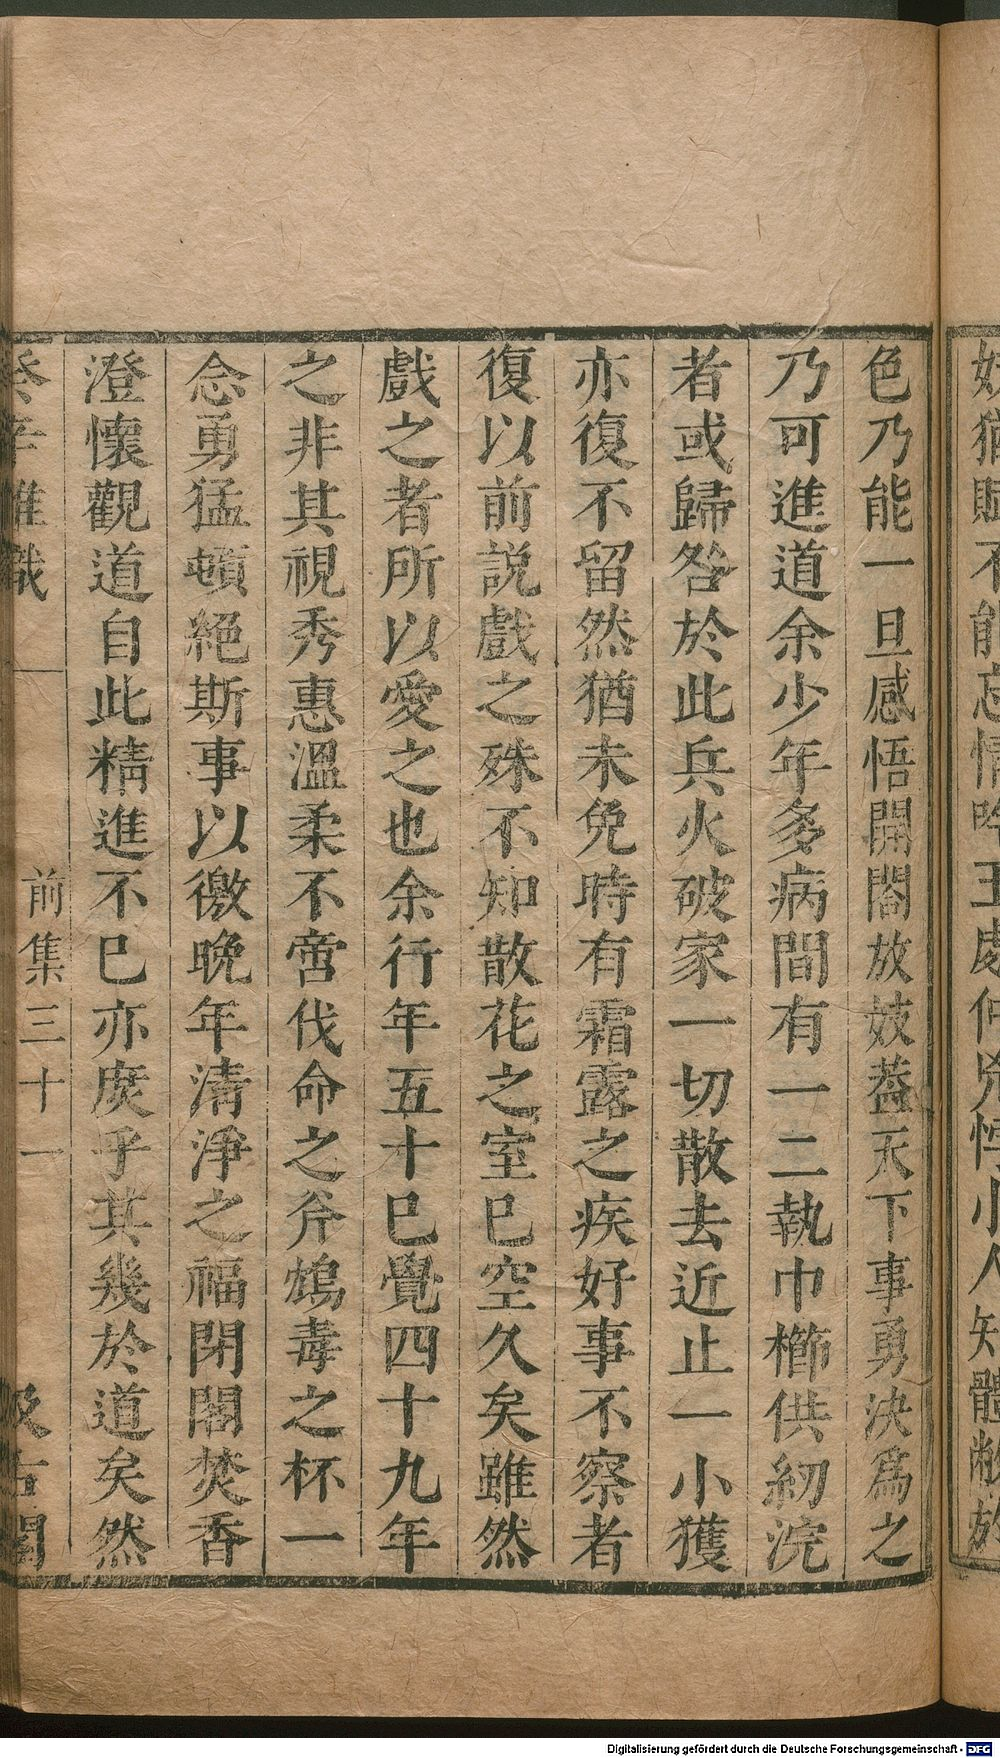 奴猶賦不能忘情吟王處仲兇悖小人知體敝於
色乃能一旦感悟開閤放妓葢天下事勇決爲之
乃可進道余少年多病間有一二執巾櫛供紉浣
者或歸咎於此兵火破家一切散去近止一小獲
亦復不留然猶未免時有霜露之疾好事不察者
復以前説戲之殊不知散花之室巳空久矣雖然
戲之者所以愛之也余行年五十巳覺四十九年
之非其視秀惠溫柔不啻伐命之斧鴆毒之杯一
念勇猛頓絕斯事以徼晚年清淨之福閉閤焚香
澄懷觀道自此精進不巳亦庻乎其幾於道矣然
癸辛雜識 前集三十一 汲古閣
Digitalisierung gefördert durch die Deutsche Forschungsgemeinschaft - DFG